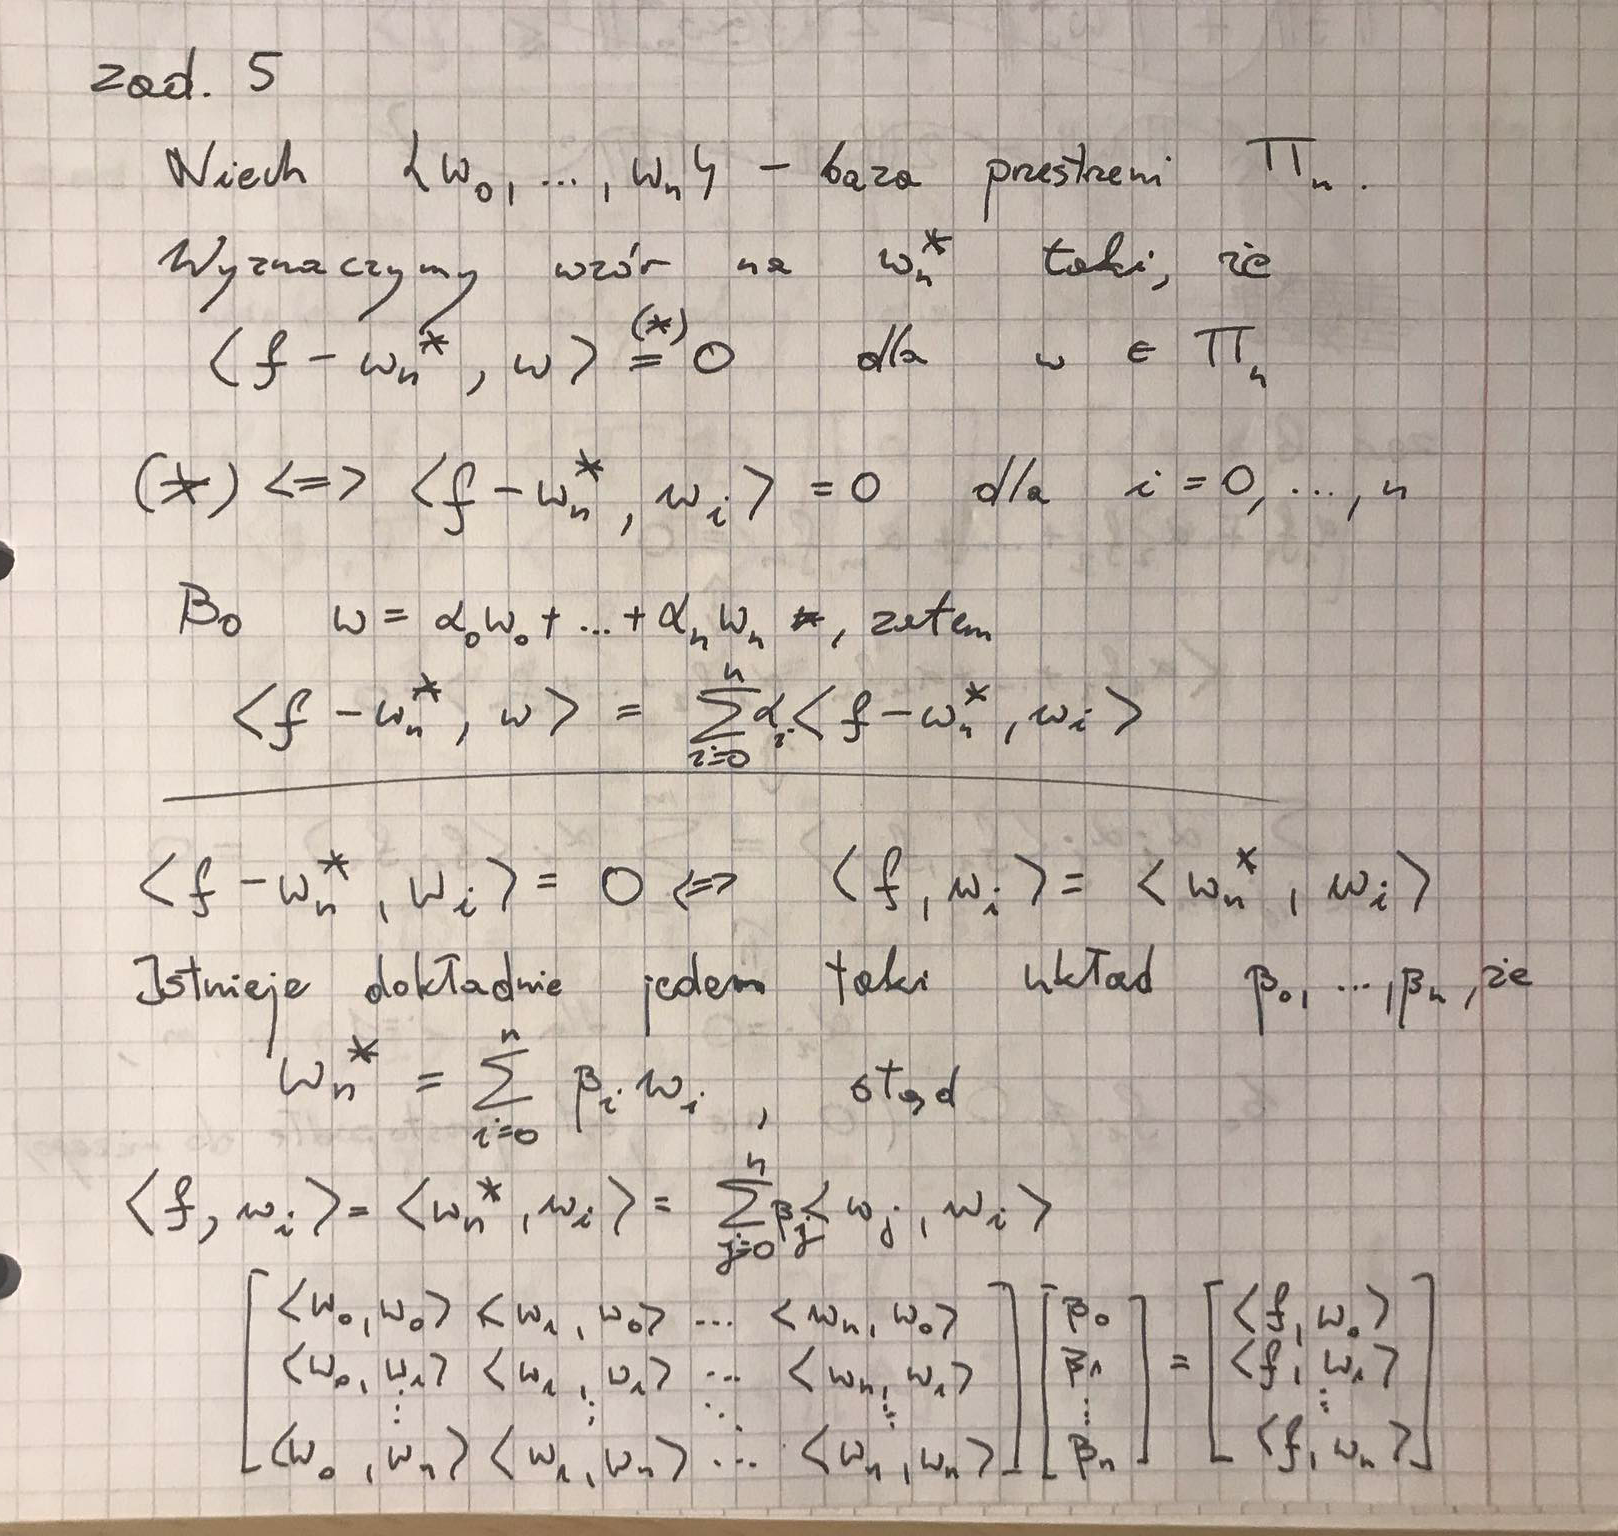 zad. 5
Niech {w₀, ..., wₙ} - baza przestrzeni Πₙ.
Wyznaczymy wzór na wₙ* taki, że
⟨f - wₙ*, w⟩ (*)= 0 dla w ∈ Πₙ
(*) <=> ⟨f - wₙ*, wᵢ⟩ = 0 dla i = 0, ..., n
Bo w = α₀w₀ + ... + αₙwₙ, zatem
⟨f - wₙ*, w⟩ = ∑ᵢ₌₀ⁿ αᵢ⟨f - wₙ*, wᵢ⟩
⟨f - wₙ*, wᵢ⟩ = 0 <=> ⟨f, wᵢ⟩ = ⟨wₙ*, wᵢ⟩
Istnieje dokładnie jeden taki układ β₀, ..., βₙ, że
wₙ* = ∑ᵢ₌₀ⁿ βᵢ wᵢ, stąd
⟨f, wᵢ⟩ = ⟨wₙ*, wᵢ⟩ = ∑ⱼ₌₀ⁿ βⱼ⟨wⱼ, wᵢ⟩
[⟨w₀, w₀⟩ ⟨w₁, w₀⟩ ... ⟨wₙ, w₀⟩] [β₀] [⟨f, w₀⟩]
[⟨w₀, w₁⟩ ⟨w₁, w₁⟩ ... ⟨wₙ, w₁⟩] [β₁] = [⟨f, w₁⟩]
⋮ ⋮ ⋱ ⋮ ⋮ ⋮
[⟨w₀, wₙ⟩ ⟨w₁, wₙ⟩ ... ⟨wₙ, wₙ⟩] [βₙ] [⟨f, wₙ⟩]